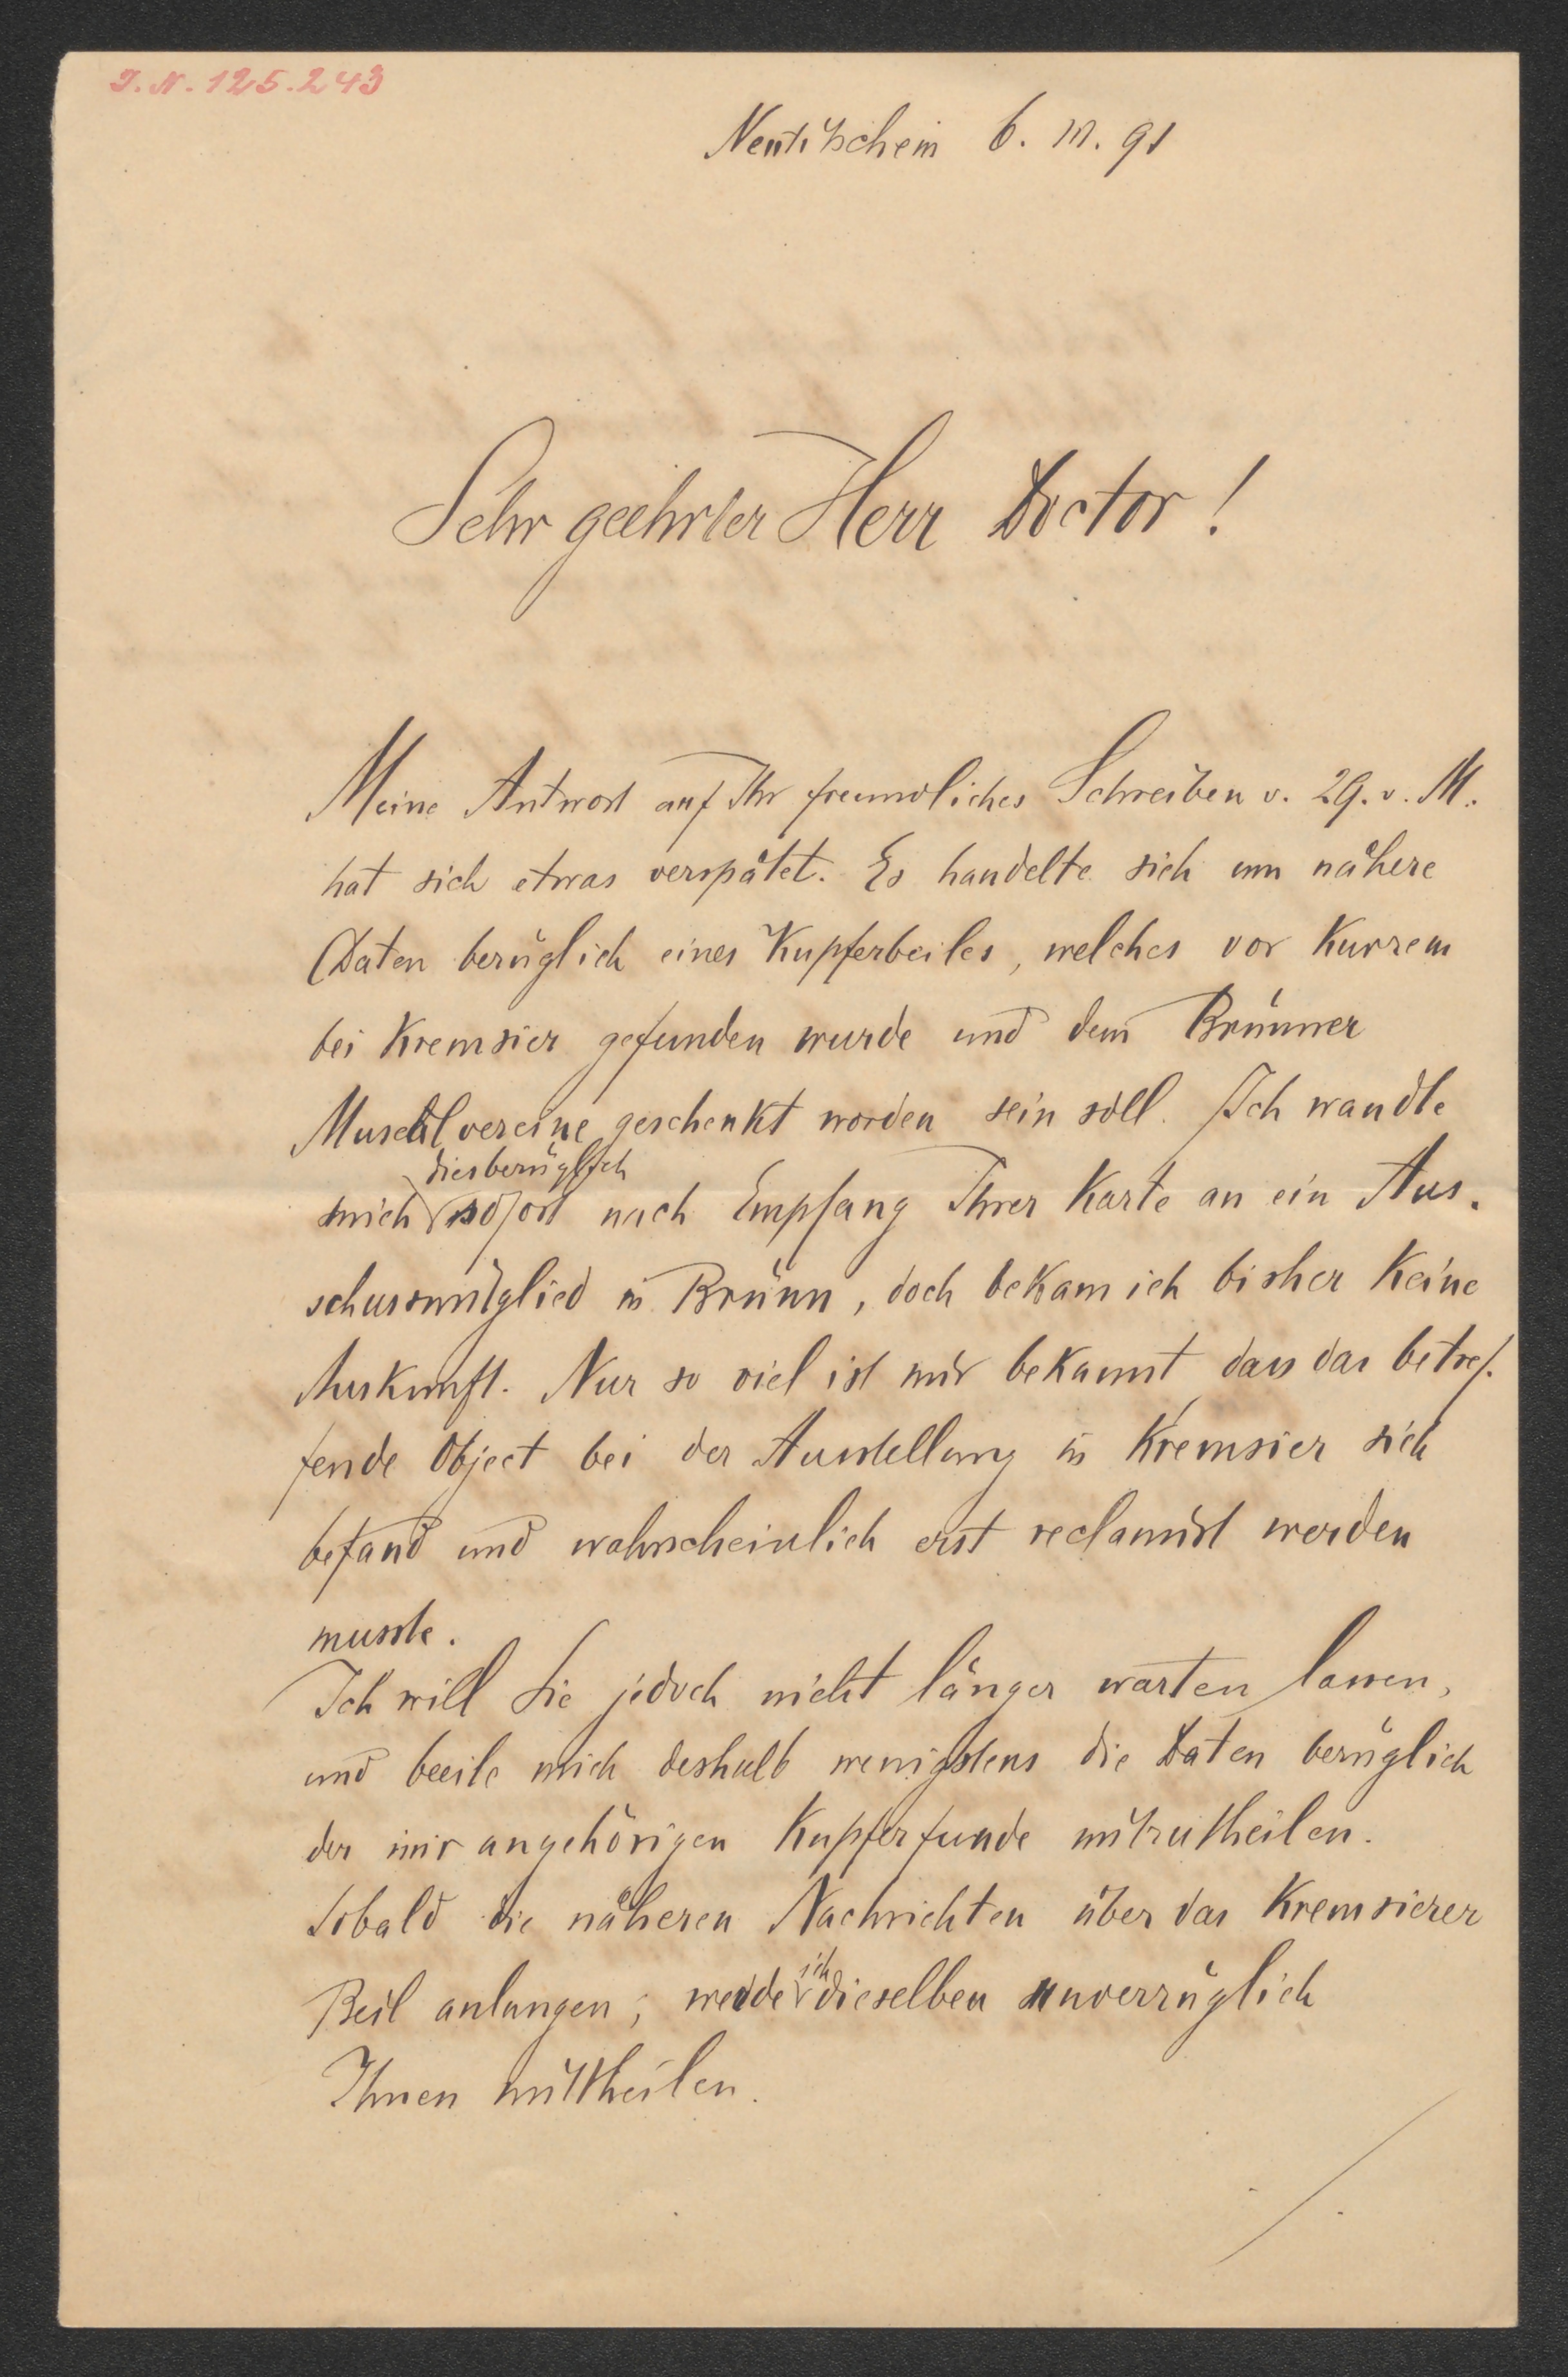 J. N. 125.243
Neutitschein 6. III. 91
Sehr geehrter Herr Doctor!
Meine Antwort auf Ihr freundliches Schreiben v. 29. v. M.
hat sich etwas verspätet. Es handelte sich um nähere
Daten bezüglich eines Kupferbeiles, welches vor Kurzem
bei Kremsier gefunden wurde und dem Brünner
Musealvereine geschenkt worden sein soll. Ich wandte
diesbezüglich
mich sofort nach Empfang Ihrer Karte an ein Aus-
schussmitglied in Brünn, doch bekam ich bisher keine
Auskunft. Nur so viel ist mir bekannt dass das betref-
fende Object bei der Ausstellung in Kremsier sich
befand und wahrscheinlich erst reclamirt werden
musste.
Ich will Sie jedoch nicht länger warten lassen,
und beeile mich deshalb wenigstens die Daten bezüglich
der mir angehörigen Kupferfunde mitzutheilen.
Sobald die näheren Nachrichten über das Kremsierer
ich
Beil anlangen, werde dieselben unverzüglich
Ihnen mittheilen.